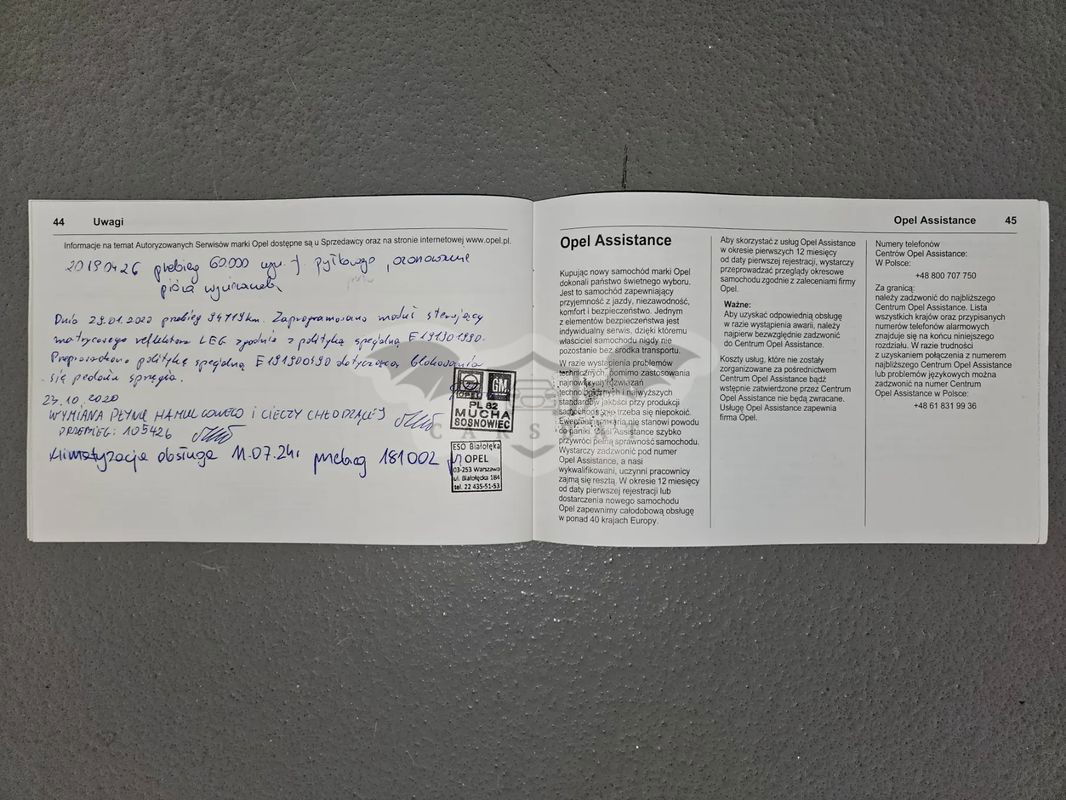 44 Uwagi
Informacje na temat Autoryzowanych Serwisów marki Opel dostępne są u Sprzedawcy oraz na stronie internetowej www.opel.pl.
20190426 przebieg 60000 wym. f pyłkowego, ozonowanie
pióra wycieraczek
Dnia 29.01.2020 przebieg 94719km. Zaprogramowano moduł sterujący
matrycowego reflektora LEG zgodnie z polityką specjalną E191901990.
Przeprowadzono politykę specjalną E191900590 dotyczącą blokowania
się pedału sprzęgła.
23.10.2020
WYMIANA PŁYNU HAMULCOWEGO I CIECZY CHŁODZĄCEJ
PRZEBIEG: 105426
Klimatyzacja obsługa 11.07.24r przebieg 181002
OPEL GM
PL 82
MUCHA
SOSNOWIEC
ESO Białołęka
OPEL
03-253 Warszawa
ul. Białołęcka 184
tel. 22 435-51-53
Opel Assistance 45
Opel Assistance
Kupując nowy samochód marki Opel
dokonali państwo świetnego wyboru.
Jest to samochód zapewniający
przyjemność z jazdy, niezawodność,
komfort i bezpieczeństwo. Jednym
z elementów bezpieczeństwa jest
indywidualny serwis, dzięki któremu
właściciel samochodu nigdy nie
pozostanie bez środka transportu.
W razie wystąpienia problemów
technicznych, pomimo zastosowania
najnowszych rozwiązań
technologicznych i najwyższych
standardów jakości przy produkcji
samochodu, nie trzeba się niepokoić.
Ewentualna awaria nie stanowi powodu
do paniki. Opel Assistance szybko
przywróci pełną sprawność samochodu.
Wystarczy zadzwonić pod numer
Opel Assistance, a nasi
wykwalifikowani, uczynni pracownicy
zajmą się resztą. W okresie 12 miesięcy
od daty pierwszej rejestracji lub
dostarczenia nowego samochodu
Opel zapewnimy całodobową obsługę
w ponad 40 krajach Europy.
Aby skorzystać z usług Opel Assistance
w okresie pierwszych 12 miesięcy
od daty pierwszej rejestracji, wystarczy
przeprowadzać przeglądy okresowe
samochodu zgodnie z zaleceniami firmy
Opel.
Ważne:
Aby uzyskać odpowiednią obsługę
w razie wystąpienia awarii, należy
najpierw bezwzględnie zadzwonić
do Centrum Opel Assistance.
Koszty usług, które nie zostały
zorganizowane za pośrednictwem
Centrum Opel Assistance bądź
wstępnie zatwierdzone przez Centrum
Opel Assistance nie będą zwracane.
Usługę Opel Assistance zapewnia
firma Opel.
Numery telefonów
Centrów Opel Assistance:
W Polsce:
+48 800 707 750
Za granicą:
należy zadzwonić do najbliższego
Centrum Opel Assistance. Lista
wszystkich krajów oraz przypisanych
numerów telefonów alarmowych
znajduje się na końcu niniejszego
rozdziału. W razie trudności
z uzyskaniem połączenia z numerem
najbliższego Centrum Opel Assistance
lub problemów językowych można
zadzwonić na numer Centrum
Opel Assistance w Polsce:
+48 61 831 99 36